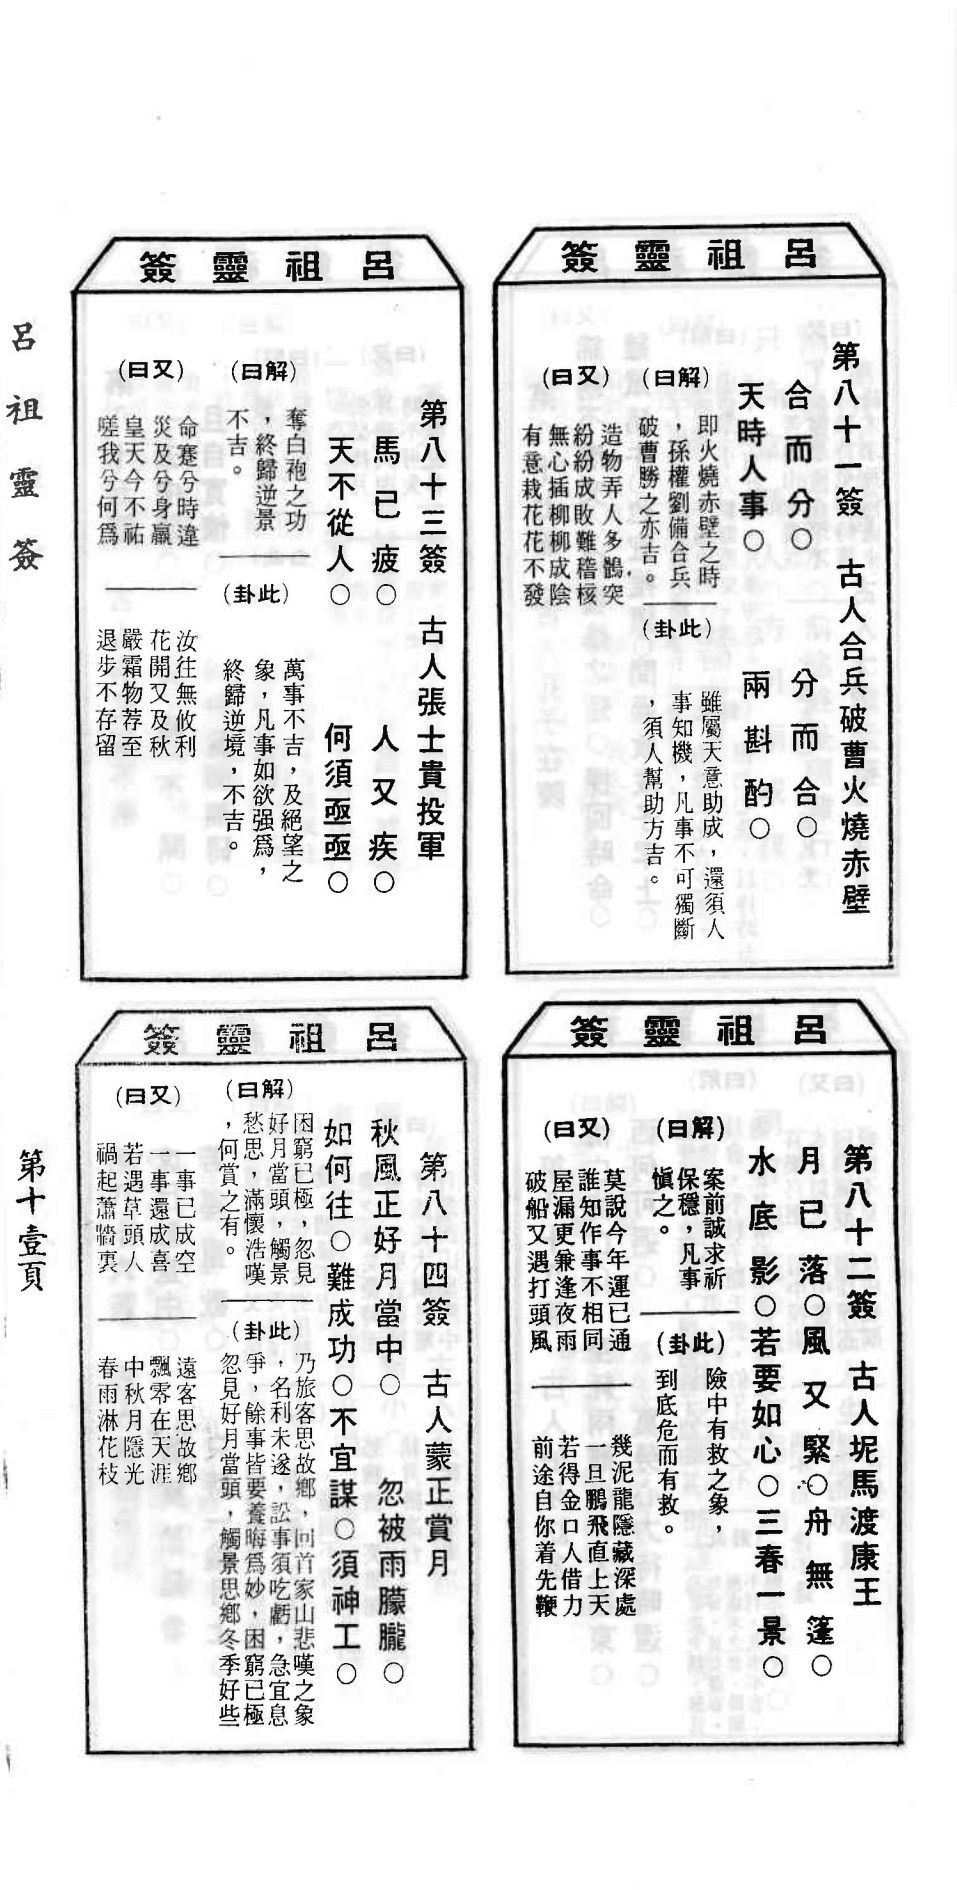 呂祖靈簽
第八十一簽　古人合兵破曹火燒赤壁
合而分○　分而合○
天時人事○　兩斟酌○
(解曰)
即火燒赤壁之時
，孫權劉備合兵
破曹勝之亦吉。
(此卦)
雖屬天意助成，還須人
事知機，凡事不可獨斷
，須人幫助方吉。
(又曰)
造物弄人多鶻突
紛紛成敗難稽核
無心插柳柳成陰
有意栽花花不發
呂祖靈簽
第八十二簽　古人坭馬渡康王
月已落○風又緊○舟無篷○
水底影○若要如心○三春一景○
(解曰)
案前誠求祈
保穩，凡事
慎之。
(此卦)
險中有救之象，
到底危而有救。
(又曰)
莫說今年運已通
誰知作事不相同
屋漏更兼逢夜雨
破船又遇打頭風
幾泥龍隱藏深處
一旦鵬飛直上天
若得金口人借力
前途自你着先鞭
呂祖靈簽
第八十三簽　古人張士貴投軍
馬已疲○　人又疾○
天不從人○　何須亟亟○
(解曰)
奪白袍之功
，終歸逆景
不吉。
(此卦)
萬事不吉，及絕望之
象，凡事如欲强爲，
終歸逆境，不吉。
(又曰)
命蹇兮時違
災及兮身羸
皇天今不祐
嗟我兮何爲
汝往無攸利
花開又及秋
嚴霜物荐至
退步不存留
呂祖靈簽
第八十四簽　古人蒙正賞月
秋風正好月當中○　忽被雨朦朧○
如何往○難成功○不宜謀○須神工○
(解曰)
困窮已極，忽見
好月當頭，觸景
愁思，滿懷浩嘆
，何賞之有。
(此卦)
乃旅客思故鄉，回首家山悲嘆之象
，名利未遂，訟事須吃虧，急宜息
爭，餘事皆要養晦爲妙，困窮已極
忽見好月當頭，觸景思鄉冬季好些
(又曰)
一事已成空
一事還成喜
若遇草頭人
禍起蕭牆裏
遠客思故鄉
飄零在天涯
中秋月隱光
春雨淋花枝
呂祖靈簽
第十壹頁